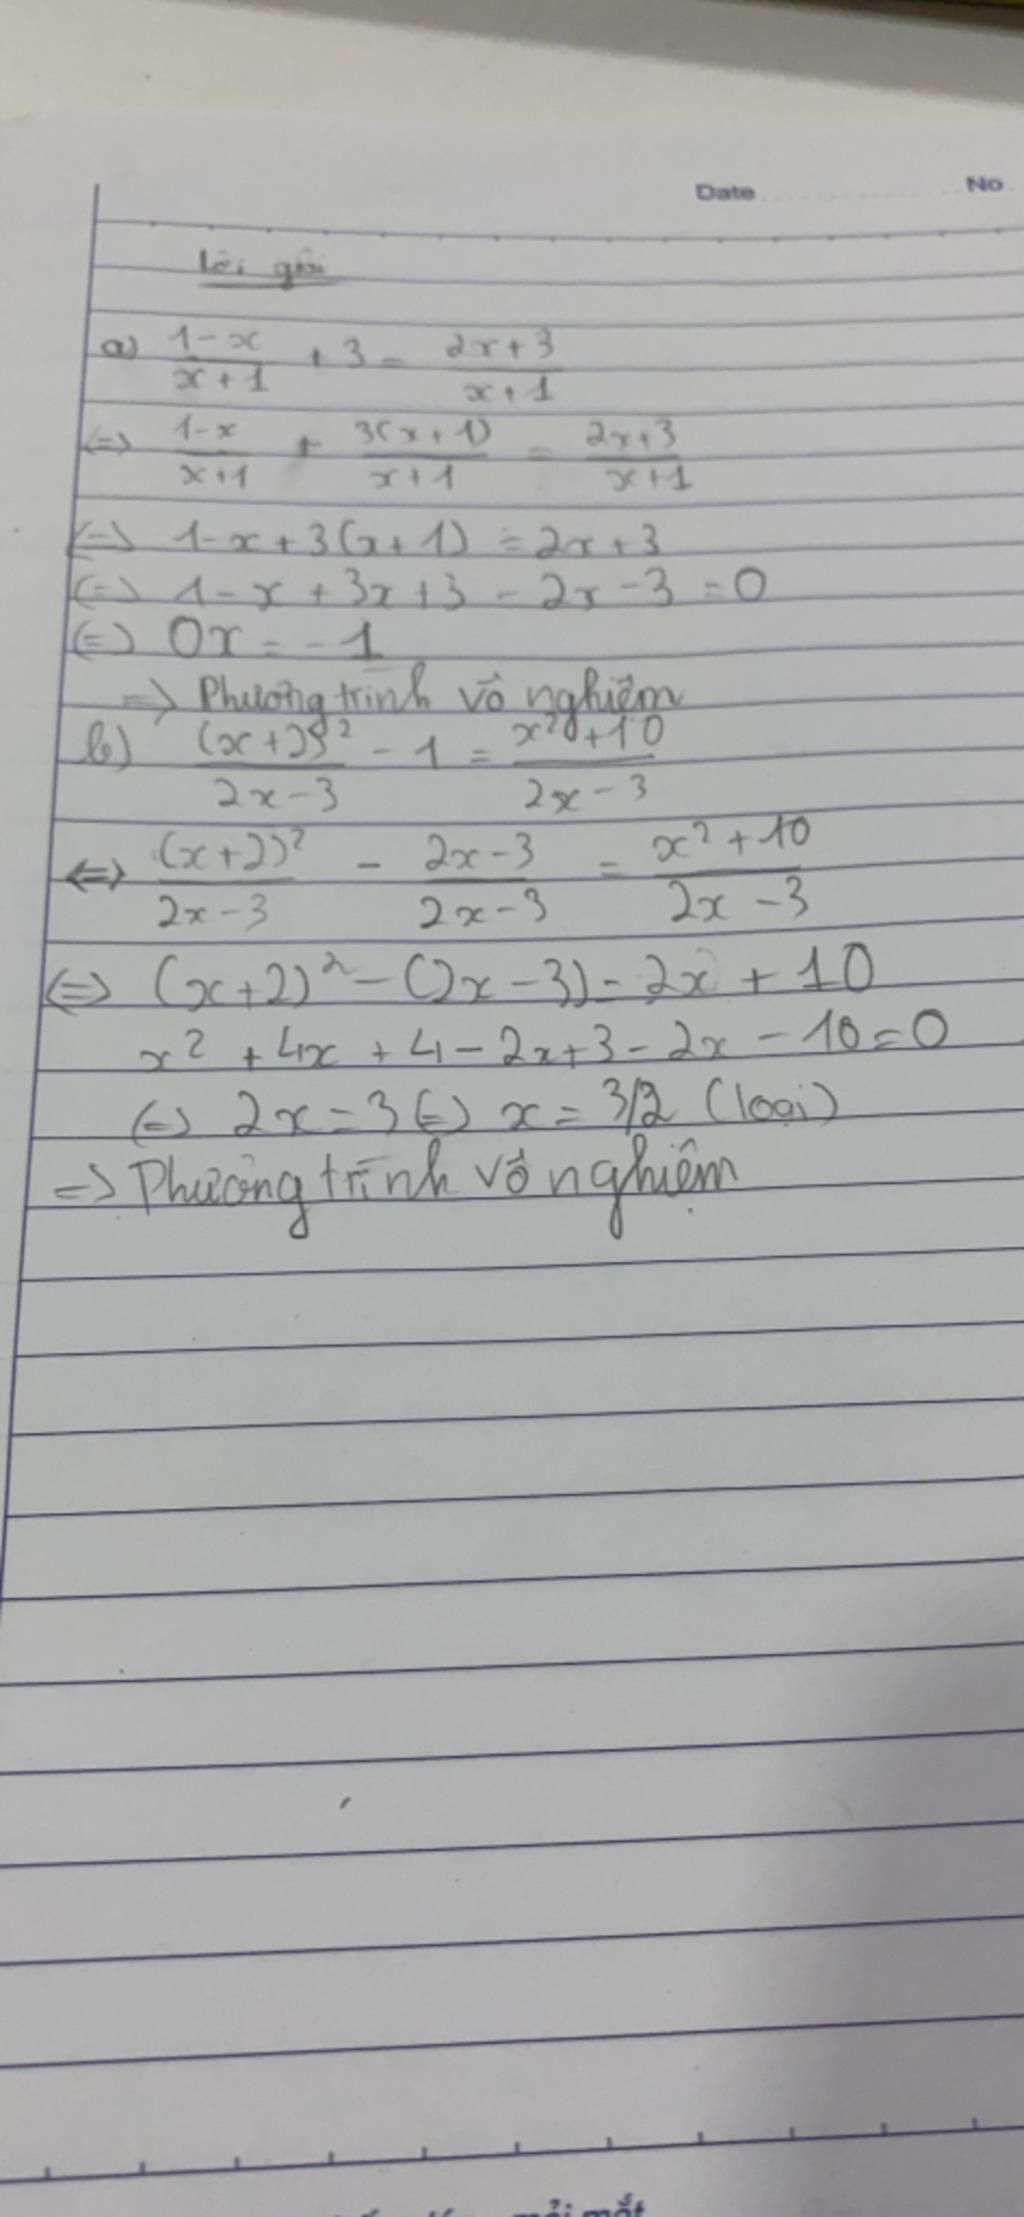 Date No
Lời giải
a) \frac{1-x}{x+1} + 3 = \frac{2x+3}{x+1}
(=) \frac{1-x}{x+1} + \frac{3(x+1)}{x+1} = \frac{2x+3}{x+1}
(=) 1-x+3(x+1) = 2x+3
(=) 1-x+3x+3-2x-3 = 0
(=) 0x = -1
=> Phương trình vô nghiệm
b) \frac{(x+2)^2}{2x-3} - 1 = \frac{x^2+10}{2x-3}
<=> \frac{(x+2)^2}{2x-3} - \frac{2x-3}{2x-3} = \frac{x^2+10}{2x-3}
(=) (x+2)^2 - (2x-3) = 2x + 10
x^2 + 4x + 4 - 2x + 3 - 2x - 10 = 0
(=) 2x = 3 (=) x = 3/2 (loại)
=> Phương trình vô nghiệm
mỏi mắt